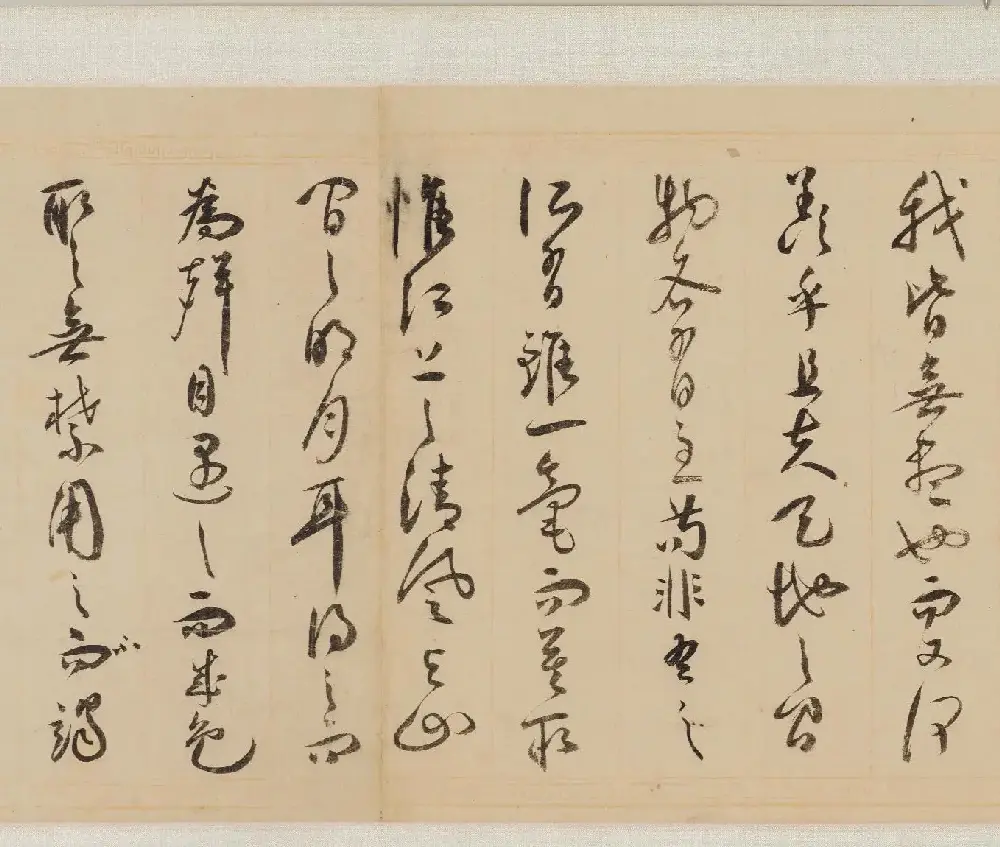 我皆無盡也而又何
羨乎且夫天地之間
物各有主苟非吾之
所有雖一毫而莫取
惟江上之清風與山
間之明月耳得之而
為聲目遇之而成色
取之無禁用之而竭